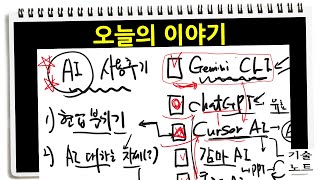 오늘의 이야기
AI 사용후기
1) 현업분위기
2) AI 대하는 자세(?)
Gemini CLI
ChatGPT
Cursor AI
감마 AI
기술
노트